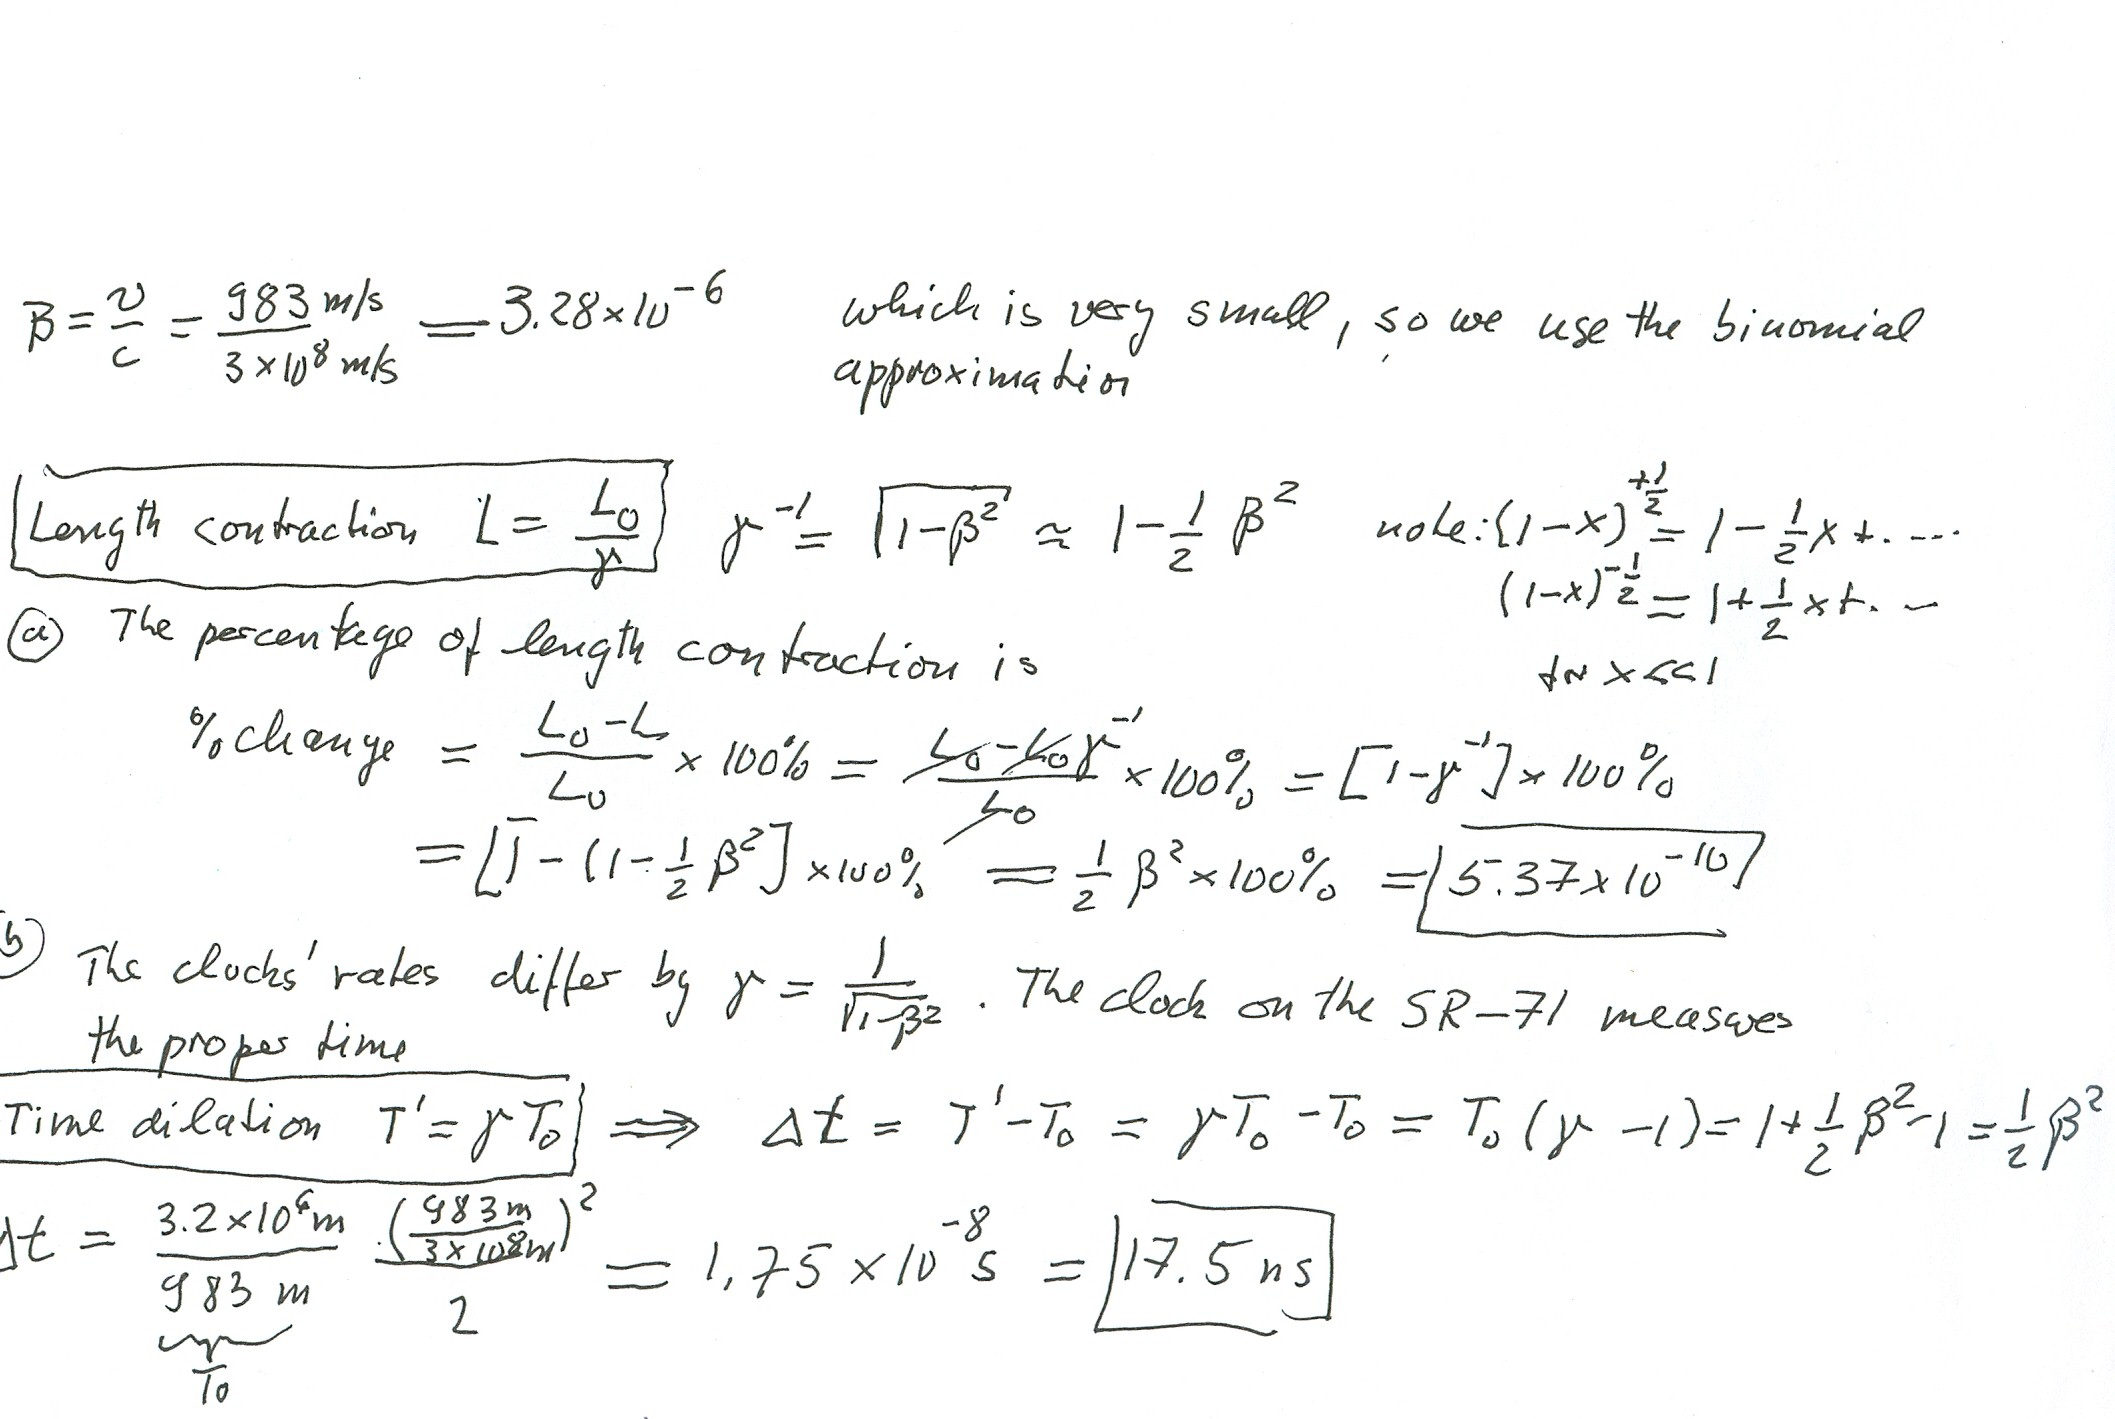 β = v/c = 983 m/s / 3×10⁸ m/s = 3.28×10⁻⁶ which is very small, so we use the binomial
approximation
Length contraction L = L₀/γ γ⁻¹ = √(1-β²) ≈ 1 - 1/2 β² note: (1-x)^(+1/2) = 1 - 1/2 x + . ---
(1-x)^(-1/2) = 1 + 1/2 x + . -
for x << 1
(a) The percentage of length contraction is
% change = (L₀-L)/L₀ × 100% = (L₀-L₀γ⁻¹)/L₀ × 100% = [1-γ⁻¹] × 100%
= [1 - (1 - 1/2 β²] × 100% = 1/2 β² × 100% = 5.37×10⁻¹⁰
(b) The clocks' rates differ by γ = 1/√(1-β²) . The clock on the SR-71 measures
the proper time
Time dilation T' = γT₀ ⟹ Δt = T' - T₀ = γT₀ - T₀ = T₀(γ - 1) = 1 + 1/2 β² - 1 = 1/2 β²
Δt = 3.2×10⁶ m / 983 m · (983 m / 3×10⁸ m)² / 2 = 1.75×10⁻⁸ s = 17.5 ns
T₀